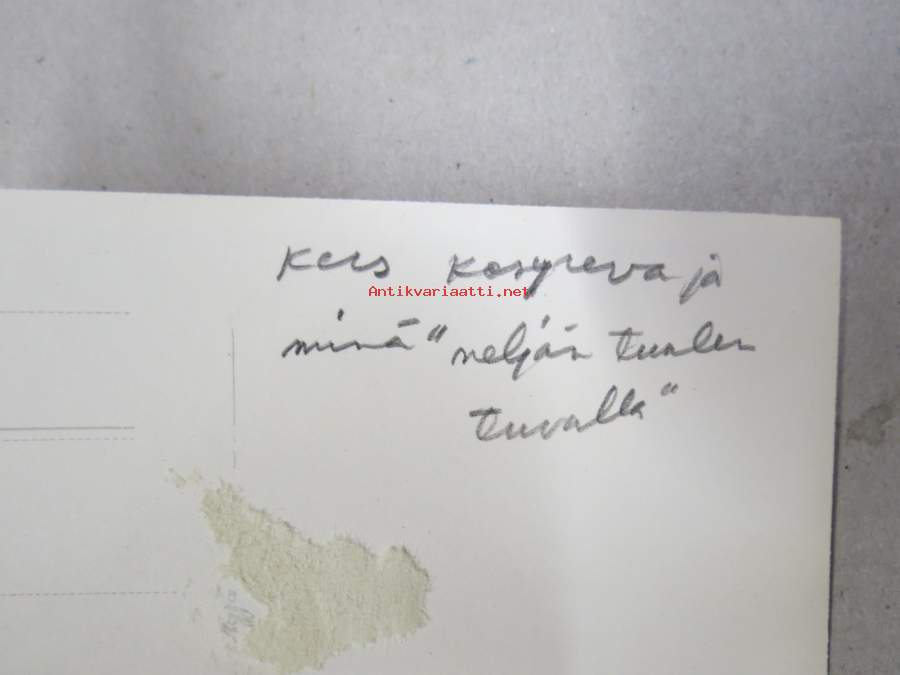 Kers Kosyreva ja
Antikvariaatti.net
minä "neljän tuulen
tuvalla"